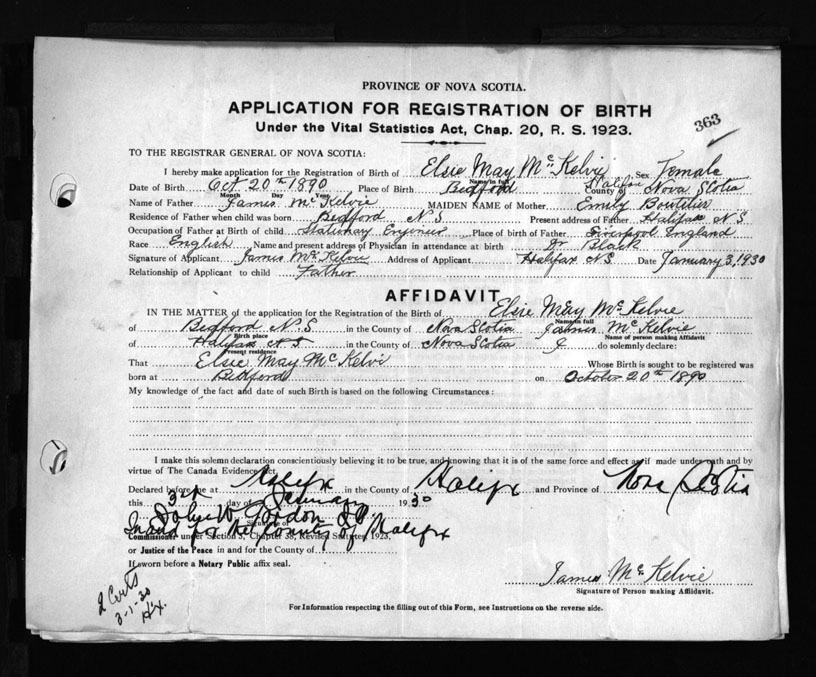 PROVINCE OF NOVA SCOTIA.
APPLICATION FOR REGISTRATION OF BIRTH
363
Under the Vital Statistics Act, Chap. 20, R. S. 1923.
TO THE REGISTRAR GENERAL OF NOVA SCOTIA:
I hereby make application for the Registration of Birth of Elsie May McKelvie Sex Female
Name in full
Date of Birth Oct 20th 1890 Place of Birth Bedford County of Halifax Nova Scotia
Month Day Year
Name of Father James McKelvie MAIDEN NAME of Mother Emily Boutilier
Residence of Father when child was born Bedford N S Present address of Father Halifax N S
Occupation of Father at Birth of child Stationary Engineer Place of birth of Father Liverpool, England
Race English Name and present address of Physician in attendance at birth Dr Black
Signature of Applicant James McKelvie Address of Applicant Halifax N S Date January 3, 1930
Relationship of Applicant to child Father
AFFIDAVIT
IN THE MATTER of the application for the Registration of the Birth of Elsie May McKelvie
Name in full
of Bedford N. S in the County of Nova Scotia James McKelvie
Birth place Name of person making Affidavit
of Halifax N S in the County of Nova Scotia I do solemnly declare:
Present residence
That Elsie May McKelvi Whose Birth is sought to be registered was
born at Bedford on October 20th 1890
My knowledge of the fact and date of such Birth is based on the following Circumstances:
I make this solemn declaration conscientiously believing it to be true, and knowing that it is of the same force and effect as if made under oath and by
virtue of The Canada Evidence Act.
Declared before me at Halifax in the County of Halifax and Province of Nova Scotia
this 3rd day of January 1930
John W. Gordon J.P.
Signature of
In and for the County of Halifax
Commissioner under Section 3, Chapter 38, Revised Statutes, 1923,
or Justice of the Peace in and for the County of
If sworn before a Notary Public affix seal.
James McKelvie
Signature of Person making Affidavit.
2 Certs
3-1-30
Hx.
For Information respecting the filling out of this Form, see Instructions on the reverse side.